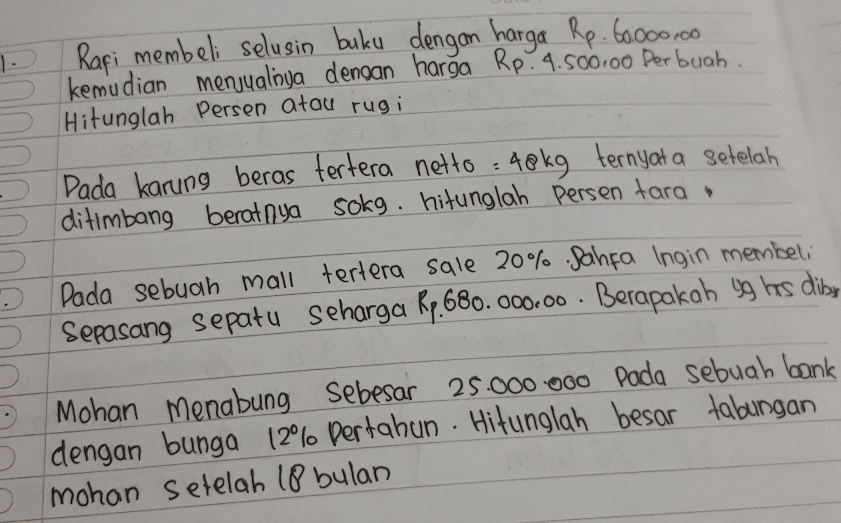 1. Rafi membeli selusin buku dengan harga Rp. 60.000,00
kemudian menjualnya dengan harga Rp. 4.500,00 Perbuah.
Hitunglah Persen atau rugi
Pada karung beras tertera netto = 48kg ternyata setelah
ditimbang beratnya 50kg. hitunglah Persen tara.
Pada sebuah mall tertera sale 20%. Ingin membeli
Sepasang sepatu seharga Rp.680.000,00. Berapakah yg hrs
Mohan Menabung Sebesar 25.000.000 Pada sebuah bank
dengan bunga 12% Pertahun. Hitunglah besar tabungan
mohan setelah 18 bulan